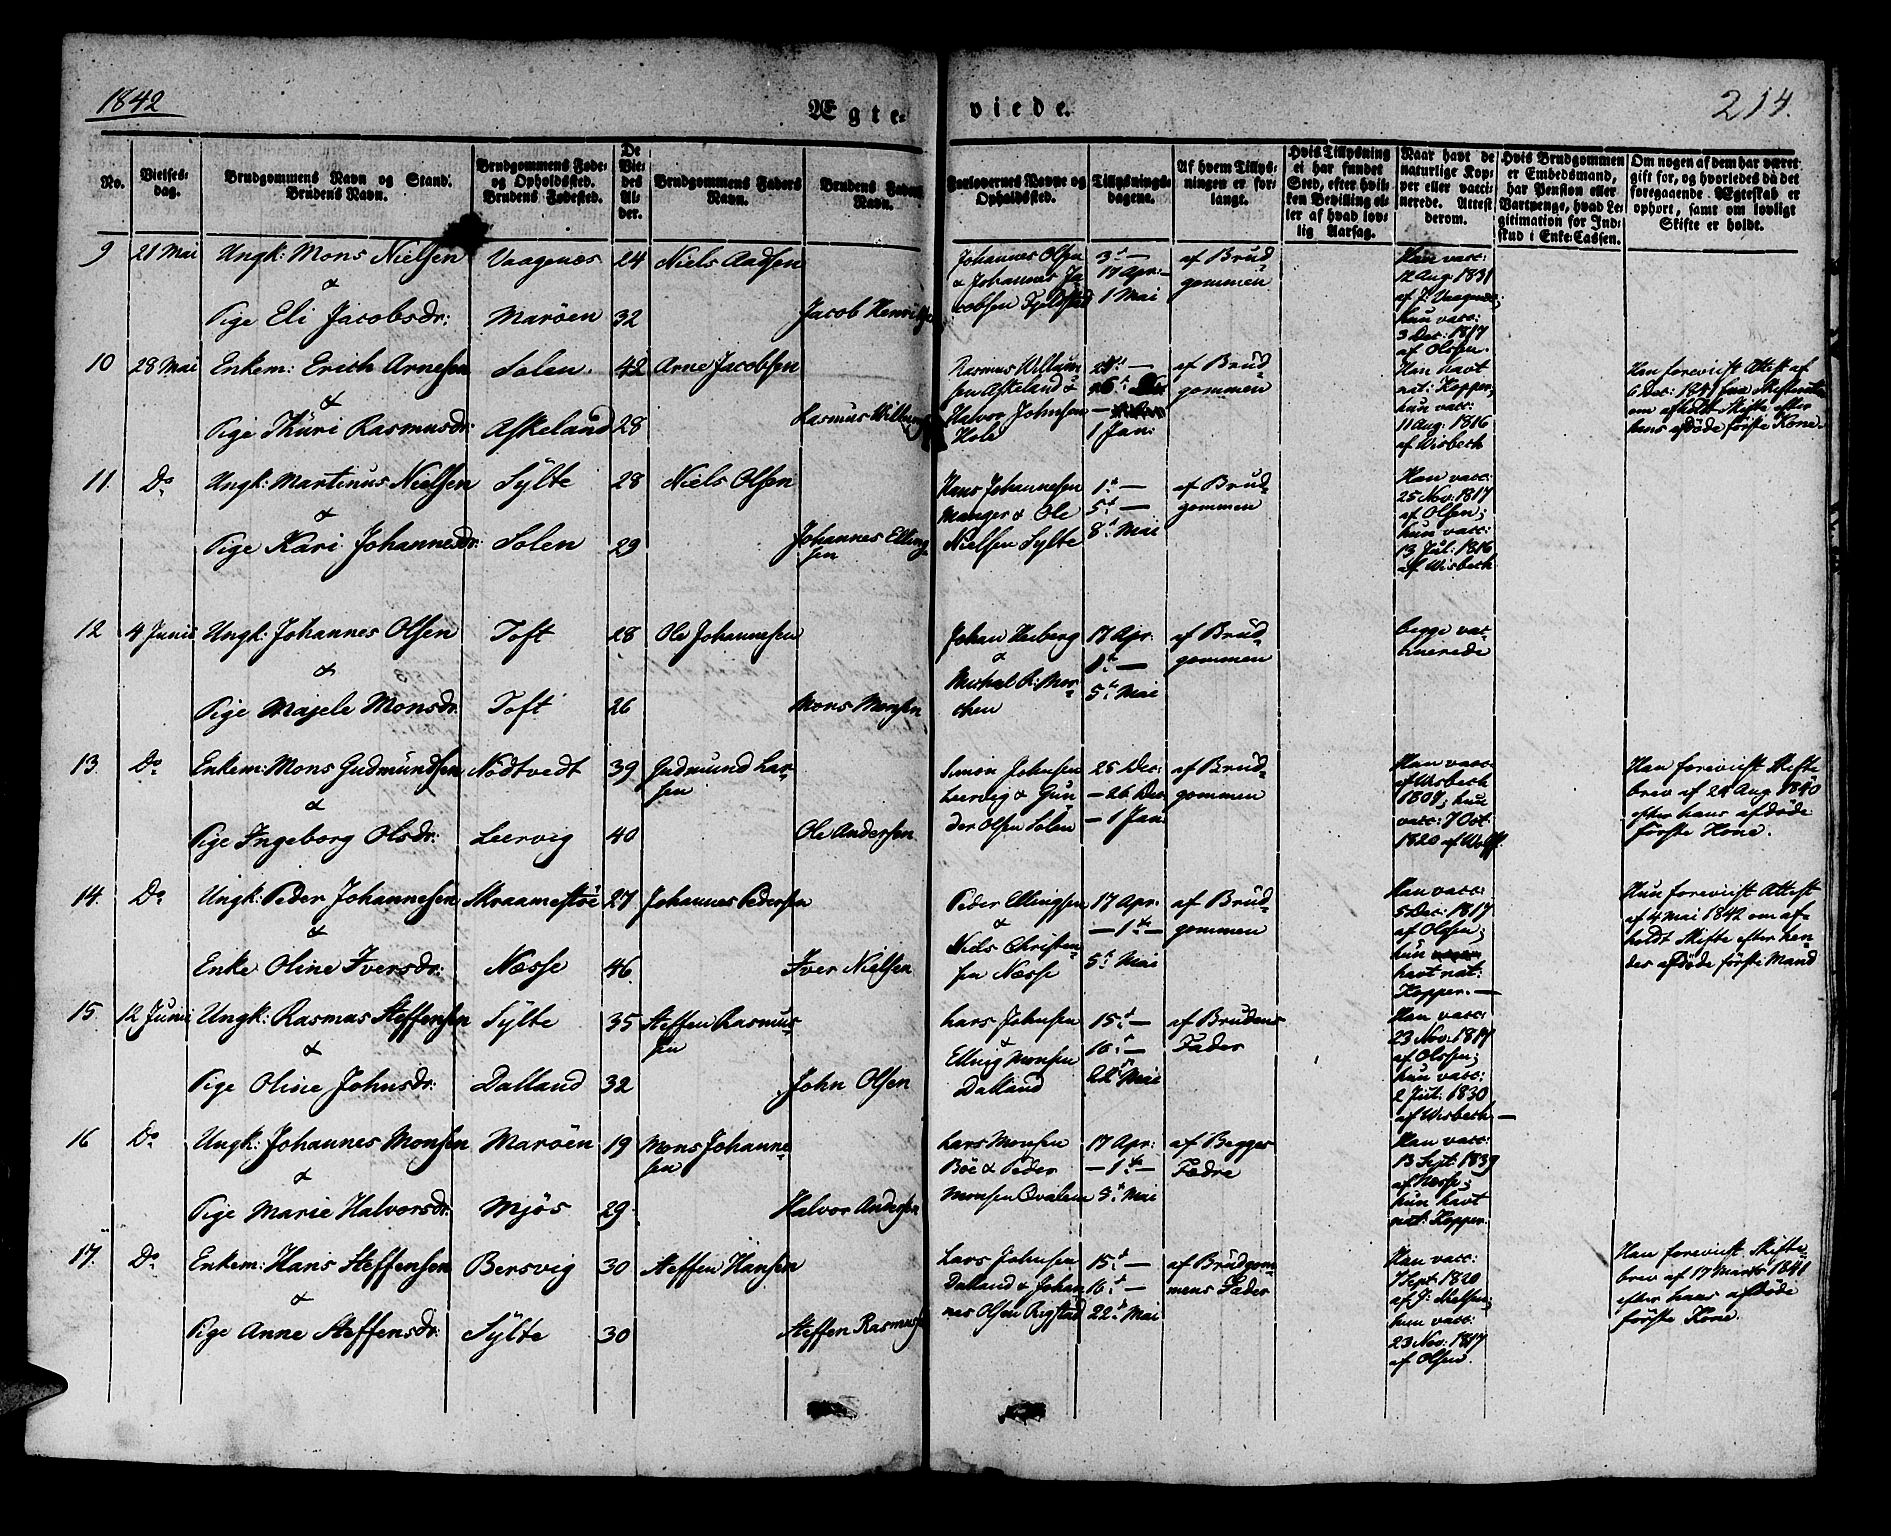 1842
Ægte-
viede.
214.
No.
Vielses-
dag.
Brudgommens Navn og Stand.
Brudens Navn.
Brudgommens Føde-
og Opholdssted.
Brudens Fødested.
De
Vie-
des
Al-
der.
Brudgommens Faders
Navn.
Brudens Faders
Navn.
Forlovernes Navne og
Opholdssted.
Tillysnings-
dagene.
Af hvem Tillys-
ningen er for-
langt.
Hvis Tillysning
ei har fundet
Sted, efter hvil-
ken Bevilling el-
ler af hvad lov-
lig Aarsag.
Naar havt de
naturlige Kop-
per eller vacci-
nerede. Attest
derom.
Hvis Brudgommen
er Embedsmand,
har Pension eller
Vartpenge, hvad Le-
gitimation for Ind-
skud i Enke-Cassen.
Om nogen af dem har været
gift før, og hvorledes da det
foregaaende Ægteskab er
ophørt, samt om lovligt
Skifte er holdt.
9 21 Mai Ungk: Mons Nielsen Vaagenæs 24 Niels Aadsen
&
Pige Eli Jacobsdr: Marøen 32 Jacob Henrik
Johannes Olsen
& Johannes Ja-
cobsen Fjeldstad
3d —
17 Apr: —
1 Mai
af Brud-
gommen
Han vacc:
12 Aug: 1831
af J. Vaagenæs;
hun vacc:
3 Dec: 1817
af Olsen.
10 28 Mai Enkem: Erich Arnesen Solen. 42 Arne Jacobsen
&
Pige Thuri Rasmusdr: Askeland 28 Rasmus Willum
Rasmus Willum-
sen Askeland &
Halvor Johnsen
Hole
1 Jan:
af Brud-
gommen
Han havt
nat: Kopper,
hun vacc:
11 Aug: 1816
af Wisbech
Han foreviist Attest af
6 Dec: 1841 fra Skifteretten
om afholdt Skifte efter
hans afdøde første Kone.
11. Do Ungk: Martinus Nielsen Sylte 28 Niels Olsen
&
Pige Kari Johannesdr: Solen 29 Johannes Elling-
sen
Hans Johannesen
Manger & Ole
Nielsen Sylte
1st —
5t —
8t Mai
af Brud-
gommen
Han vacc:
25 Nov: 1817
af Olsen;
hun vacc:
13 Jul: 1816
af Wisbech
12 4 Junii Ungk: Johannes Olsen Toft 28 Ole Johannesen
&
Pige Majele Monsdr. Toft 26 Mons Monsen
Johan Heiberg
&
Michal R: Mor-
chen
17 Apr:
1st —
5t Mai
af Brud-
gommen
begge vac-
cinerede
13. Do Enkem: Mons Gudmundsen Nødtvedt 39 Gudmund Lar-
sen
&
Pige Ingeborg Olsdr: Leervig 40 Ole Andersen
Simon Johnsen
Leervig & Gun-
der Olsen Solen
25 Dec:
— 26 Dec
— 1 Jan
af Brud-
gommen
Han vacc:
af Wisbech
1807; hun
vacc: 7 Oct
1820 af Wolff
Han foreviist Skifte-
brev af 24 Aug: 1840
efter hans afdøde
første Kone.
14. Do Ungk: Peder Johannesen Skraamestøe 27 Johannes Pedersen
&
Enke Oline Iversdr: Næsse 46 Iver Nielsen
Peder Ellingsen
&
Niels Christen-
sen Næsse
17 Apr:
— 1ste —
5t Mai
af Brud-
gommen
Han vacc:
5 Dec: 1817
af Olsen;
hun
havt nat:
Kopper. —
Hun foreviist Attest
af 4 Mai 1842 om af-
holdt Skifte efter hen-
des afdøde første Mand
15 12 Junii Ungk: Rasmus Steffensen Sylte 35 Steffen Rasmus-
sen
&
Pige Oline Johnsdr: Dalland 32 John Olsen
Lars Johnsen
&
Elling Monsen
Dalland
15t —
16t —
22t Mai
af Brudens
Fader
Han vacc:
23 Nov: 1817
af Olssen;
hun vacc:
2 Jul: 1830
af Wisbech —
16 Do Ungk: Johannes Monsen Marøen 19 Mons Johanne-
sen
&
Pige Marie Halvorsdr. Mjøs 29 Halvor Andersen
Lars Monsen
Bøe & Peder
Monsen Qvalen
17 Apr:
— 1ste —
8t Mai
af Begges
Fædre
Han vacc:
13 Sept: 1839
af Næsse;
hun havt
nat: Kopper.
17. Do Enkem: Hans Steffensen Bersvig 30 Steffen Hansen
&
Pige Anne Steffensdr: Sylte 30 Steffen Rasmus
Lars Johnsen
Dalland & Johan-
nes Olsen Rigstad
15t —
16t —
22t Mai
af Brudgom-
mens Fader
Han vacc:
7 Sept: 1820
af J: Nelsen;
hun vacc:
23 Nov: 1817
af Olsen.
Han foreviist Skifte-
brev af 17 Marts 1841
efter hans afdøde
første Kone.